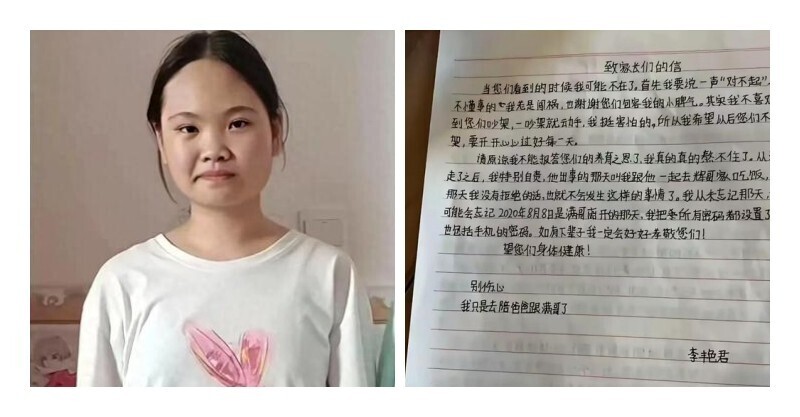 致家长们的信
当您们看到的时候我可能不在了。首先我要说一声“对不起”,
不懂事的我老是闯祸,也谢谢您们包容我的小脾气。其实我不喜
到您们吵架,一吵架就动手,我挺害怕的。所以我希望以后您们不
架,要开开心心过好每一天。
请原谅我不能报答您们的养育之恩了,我真的真的熬不住了。从
走了之后,我特别自责,他出事的那天叫我跟他一起去辉哥家吃饭,
那天我没有拒绝的话,也就不会发生这样的事情了。我从未忘记那天,
可能会忘记2020年8月8日是满哥离开的那天,我把所有密码都设置了
也包括手机的密码。如有下辈子我一定会好好孝敬您们!
望您们身体健康!
别伤心
我只是去陪爸爸跟满哥了
李艳君